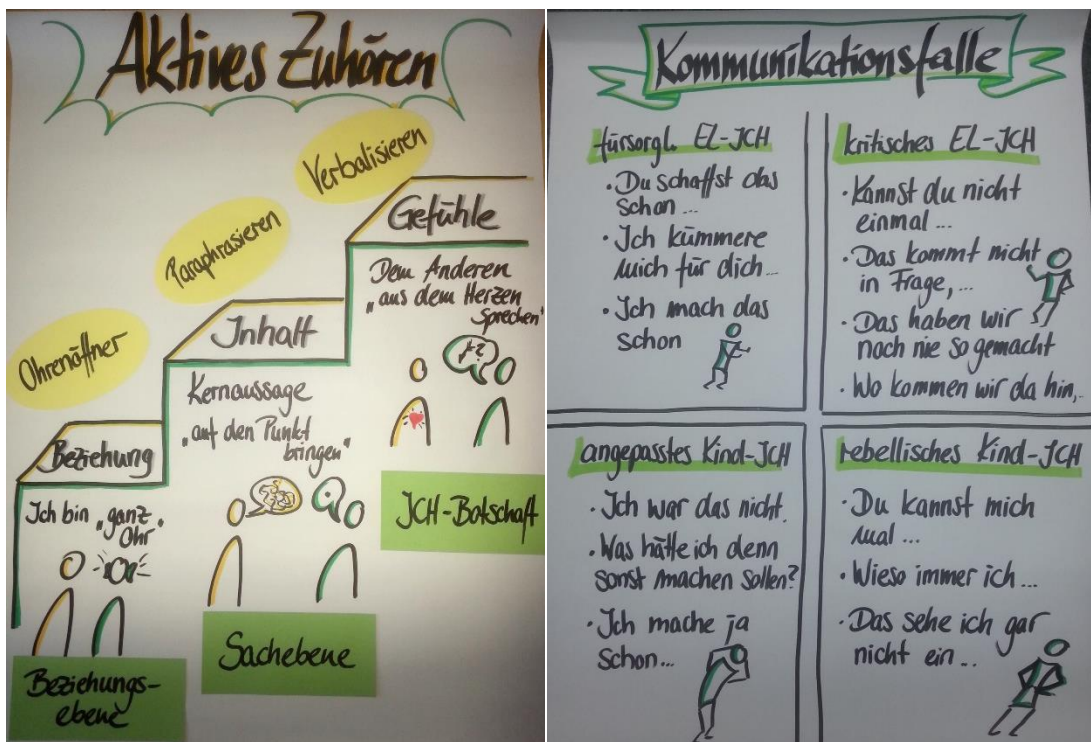 Aktives Zuhören
Verbalisieren
Gefühle
Dem Anderen
„aus dem Herzen
sprechen“
ICH-Botschaft
Paraphrasieren
Inhalt
Kernaussage
„auf den Punkt
bringen“
Sachebene
Ohrenöffner
Beziehung
Ich bin „ganz
Ohr“
Beziehungs-
ebene
Kommunikationsfalle
fürsorgl. EL-ICH
• Du schaffst das
schon ...
• Ich kümmere
mich für dich...
• Ich mach das
schon
kritisches EL-ICH
• Kannst du nicht
einmal ...
• Das kommt nicht
in Frage, ...
• Das haben wir
noch nie so gemacht
• Wo kommen wir da hin,..
angepasstes Kind-ICH
• Ich war das nicht.
• Was hätte ich denn
sonst machen sollen?
• Ich mache ja
schon...
rebellisches Kind-ICH
• Du kannst mich
mal ...
• Wieso immer ich ...
• Das sehe ich gar
nicht ein ...